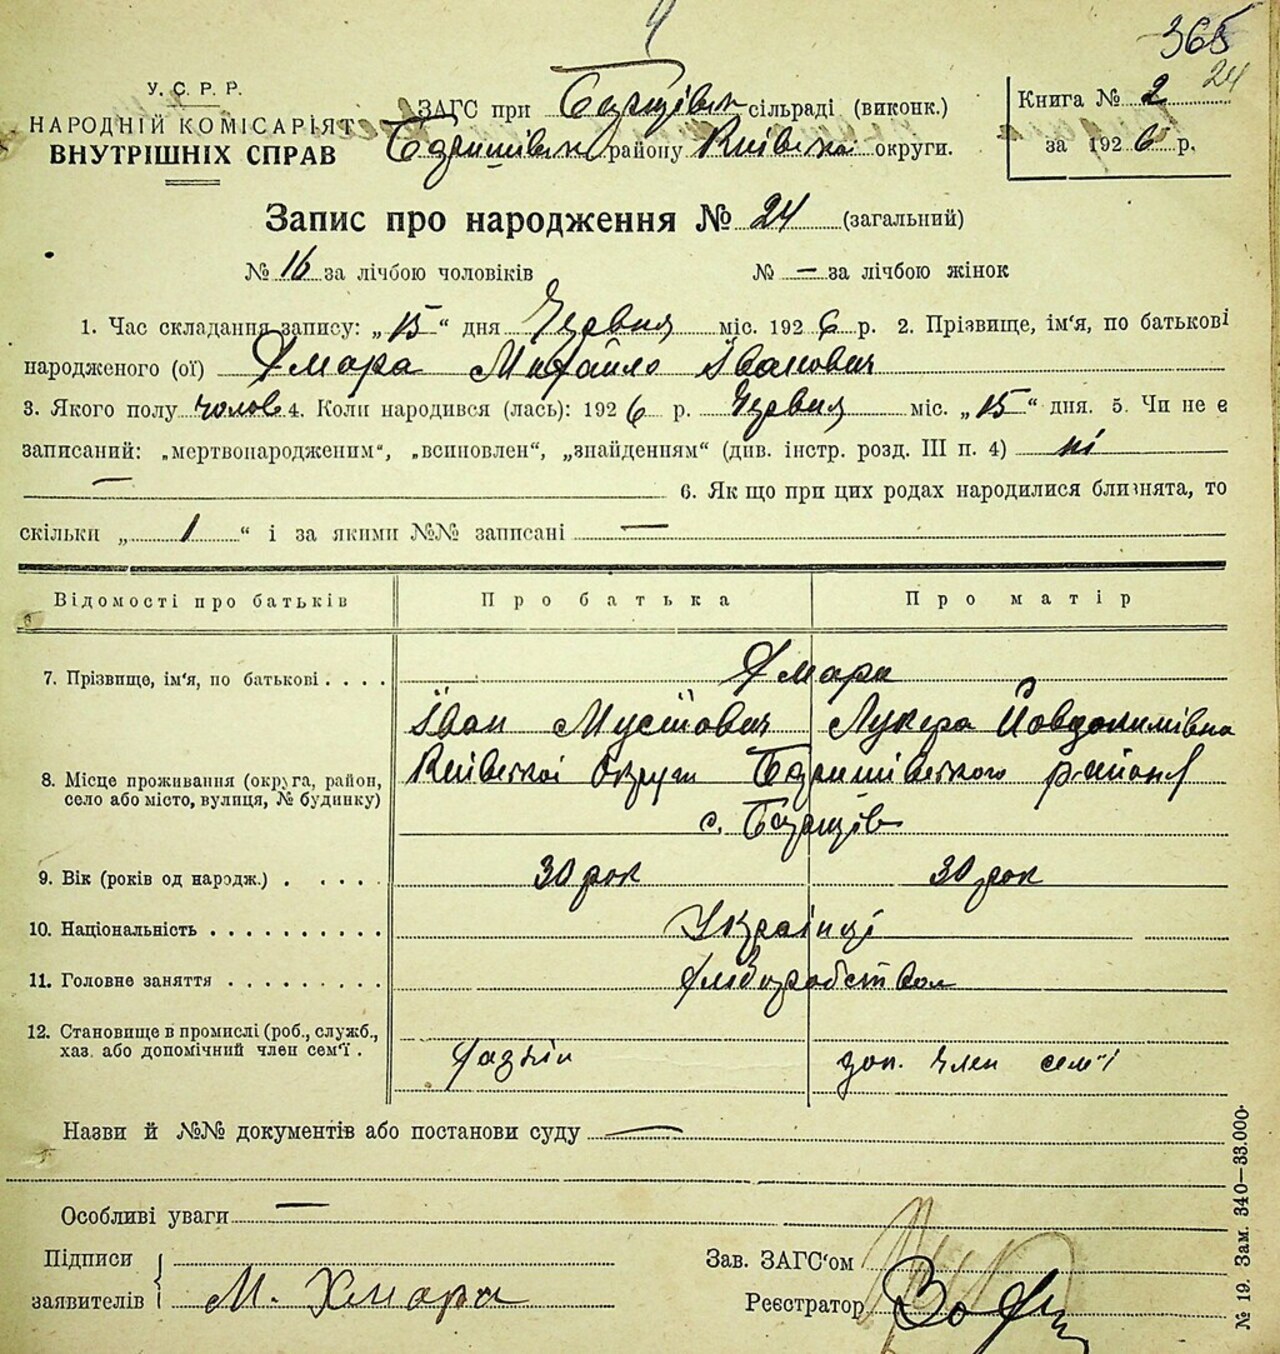 365
24
У. С. Р. Р.
НАРОДНІЙ КОМІСАРІЯТ
ВНУТРІШНІХ СПРАВ
ЗАГС при сільраді (виконк.)
району Київської округи.
Книга № 2
за 1926 р.
Запис про народження № 24 (загальний)
№ 16 за лічбою чоловіків № — за лічбою жінок
1. Час складання запису: „15“ дня Червня міс. 1926 р. 2. Прізвище, ім‘я, по батькові
народженого (ої) Хмара Михайло Іванович
3. Якого полу чолов. 4. Коли народився (лась): 1926 р. Червня міс. „15“ дня. 5. Чи не є
записаний: „мертвонародженим“, „всиновлен“, „знайденням“ (див. інстр. розд. III п. 4) ні
— 6. Як що при цих родах народилися близнята, то
скільки „1“ і за якими №№ записані —
Відомості про батьків Про батька Про матір
7. Прізвище, ім‘я, по батькові . . . . Хмара
Іван Мусійович Лукера Йовдокимівна
8. Місце проживання (округа, район,
село або місто, вулиця, № будинку)
Київської округи района
с.
9. Вік (років од народж.) . . . . . 30 рок 30 рок
10. Національність . . . . . . . . . . Українці
11. Головне заняття . . . . . . . . . Хліборобством
12. Становище в промислі (роб., служб.,
хаз. або допомічний член сем‘ї .
Хазяїн доп. член сем'ї
Назви й №№ документів або постанови суду —
Особливі уваги —
Підписи
заявителів
М. Хмара
Зав. ЗАГС‘ом
Реєстратор
№ 19. Зам. 340—33.000.